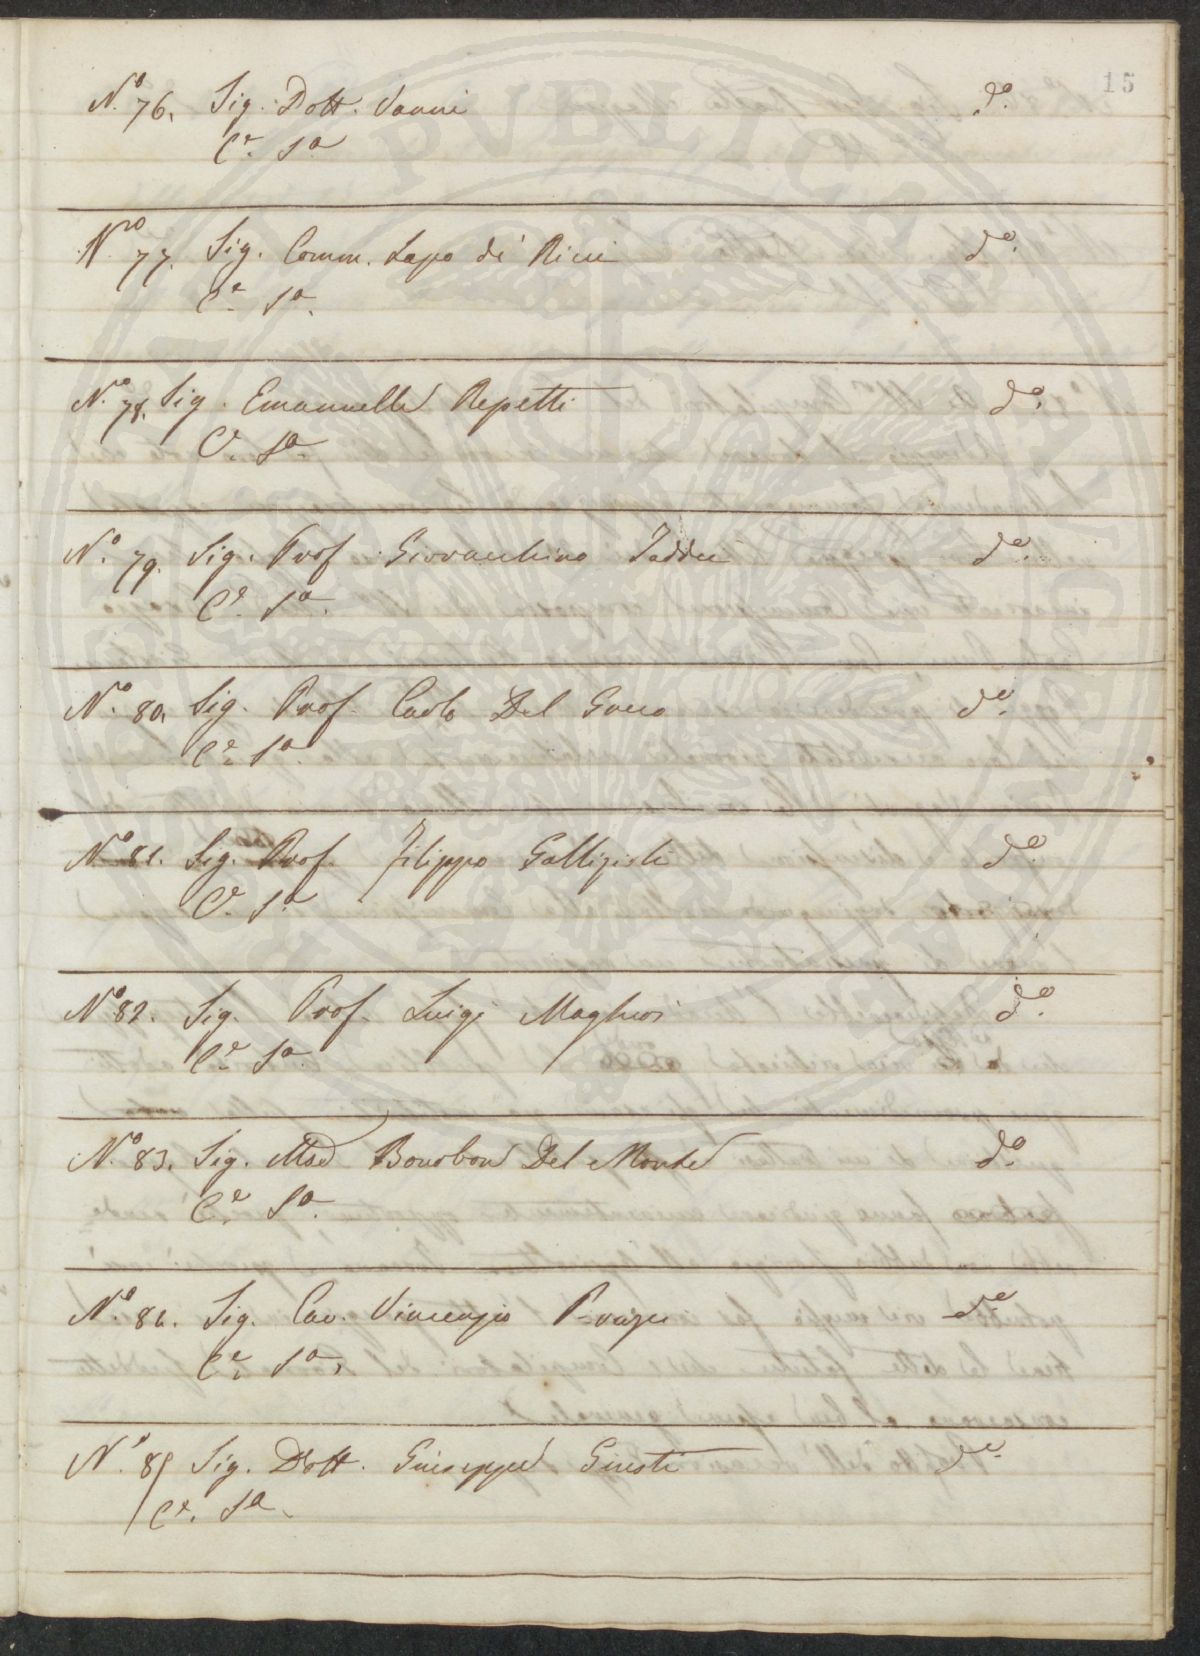 15
N.º 76. Sig. Dott. Vanni d.º
C.e S.a
N.ro 77. Sig. Comm. Lapo de' Ricci d.º
C.e S.a
N.º 78. Sig. Emanuelle Repetti d.º
C.e S.a
N.º 79. Sig. Prof. Giovacchino Taddei d.º
C.e S.a
N.º 80. Sig. Prof. Carlo Del Greco d.º
C.e S.a
N.º 81. Sig. Prof. Filippo Gallizioli d.º
C.e S.a
N.º 82. Sig. Prof. Luigi Magheri d.º
C.e S.a
N.º 83. Sig. Mse Bourbon Del Monte d.º
C.e S.a
N.º 84. Sig. Cav. Vincenzio d.º
C.e S.a
N.º 85 Sig. Dott. Giuseppe Giusti d.º
C.e S.a